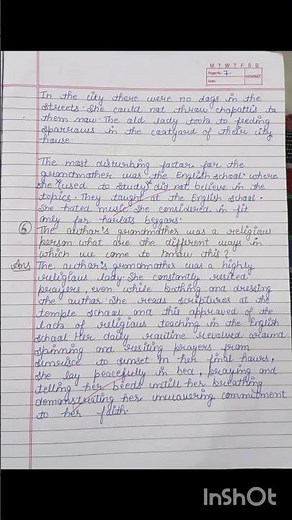 M T W T F S S
Page No.: 7
Date:
In the city there were no dogs in the
streets. She could not throw chapattis to
them now. The old lady took to feeding
sparrows in the coatyard of their city
house.
The most disturbing factor for the
grandmother was the English school where
she used to study did not believe in the
topics. They taught at the English school.
She hated music. She considered in fit
only for harlots beggars.
6 The author's grandmother was a religious
person what are the different ways in
which we come to know this?
Ans The author's grandmother was a highly
religious lady. She constantly recited
prayers, even while bathing and dressing
the author. She reads scriptures at the
temple school and this approved of the
lack of religious teaching in the English
school. Her daily routine revolved around
spinning and reciting prayers from
sunrise to sunset. In her final hours,
she lay peacefully in bed, praying and
telling her beeds untill her breathing
demonstrating her unwavering commitment
to her faith.
InShOt